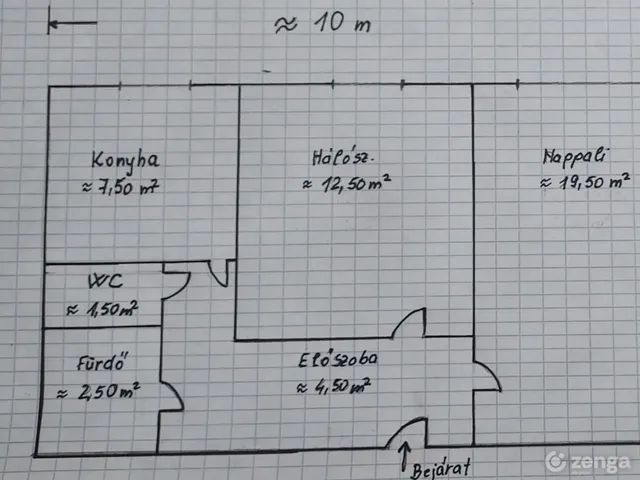 ≈ 10 m
Konyha
≈ 7,50 m²
Hálósz.
≈ 12,50 m²
Nappali
≈ 19,50 m²
WC
≈ 1,50 m²
Fürdő
≈ 2,50 m²
Előszoba
≈ 4,50 m²
Bejárat
zenga